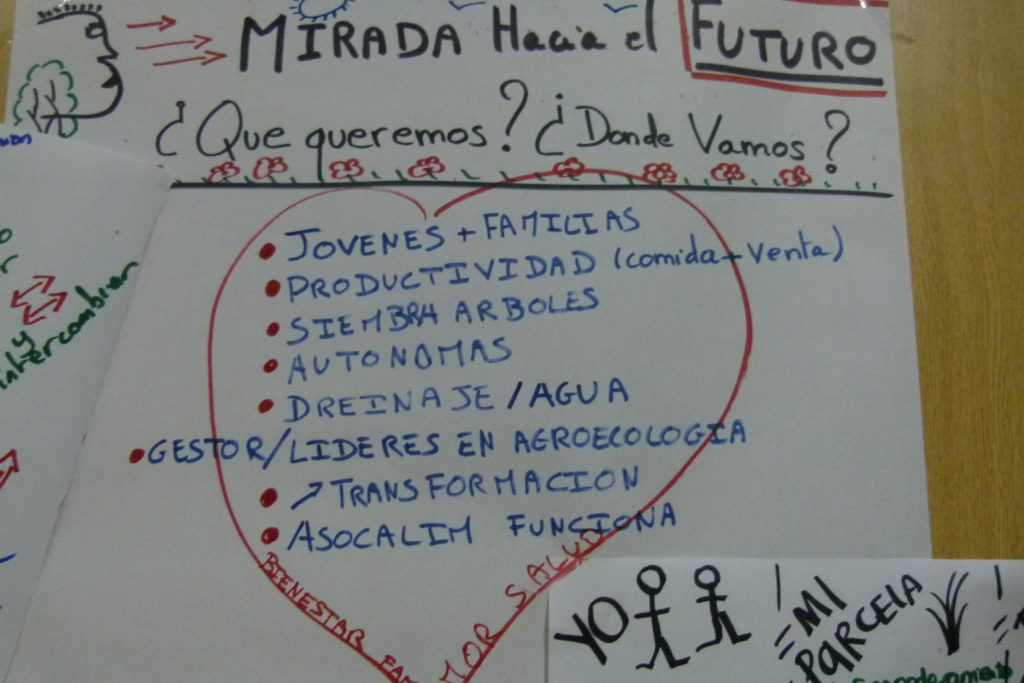 MIRADA Hacia el FUTURO
¿Que queremos? ¿Donde Vamos?
JOVENES + FAMILIAS
PRODUCTIVIDAD (comida + venta)
SIEMBRA ARBOLES
AUTONOMAS
DREINAJE / AGUA
GESTOR/LIDERES EN AGROECOLOGIA
↗ TRANSFORMACION
ASOCALIM FUNCIONA
BIENESTAR
SALUD
y
intercambiar
YO
MI
PARCELA